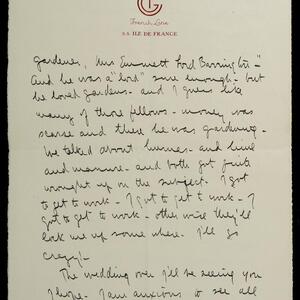 French Line
S.S. ILE DE FRANCE
gardener, Mrs Emmett Ford Barrington"
And he was a "lord" sure enough - but
he loved gardens - and I guess like
many of those fellows - money was
scarse and there he was gardening -
We talked about humus - and lime
and manure - and both got quite
wrought up on the subject. I got
to get to work - I got to get to work - I
got to get to work - other wise they'll
lock me up some where. I'll go
crazy! -
The wedding over I'll be seeing you
I hope - I am anxious to see all